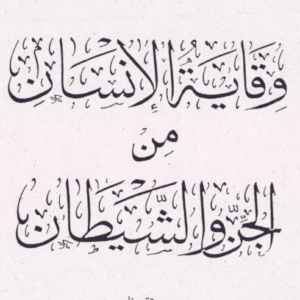 وِقَايَةُ الإِنْسَانِ
مِنَ
الجِنِّ وَالشَّيْطَانِ